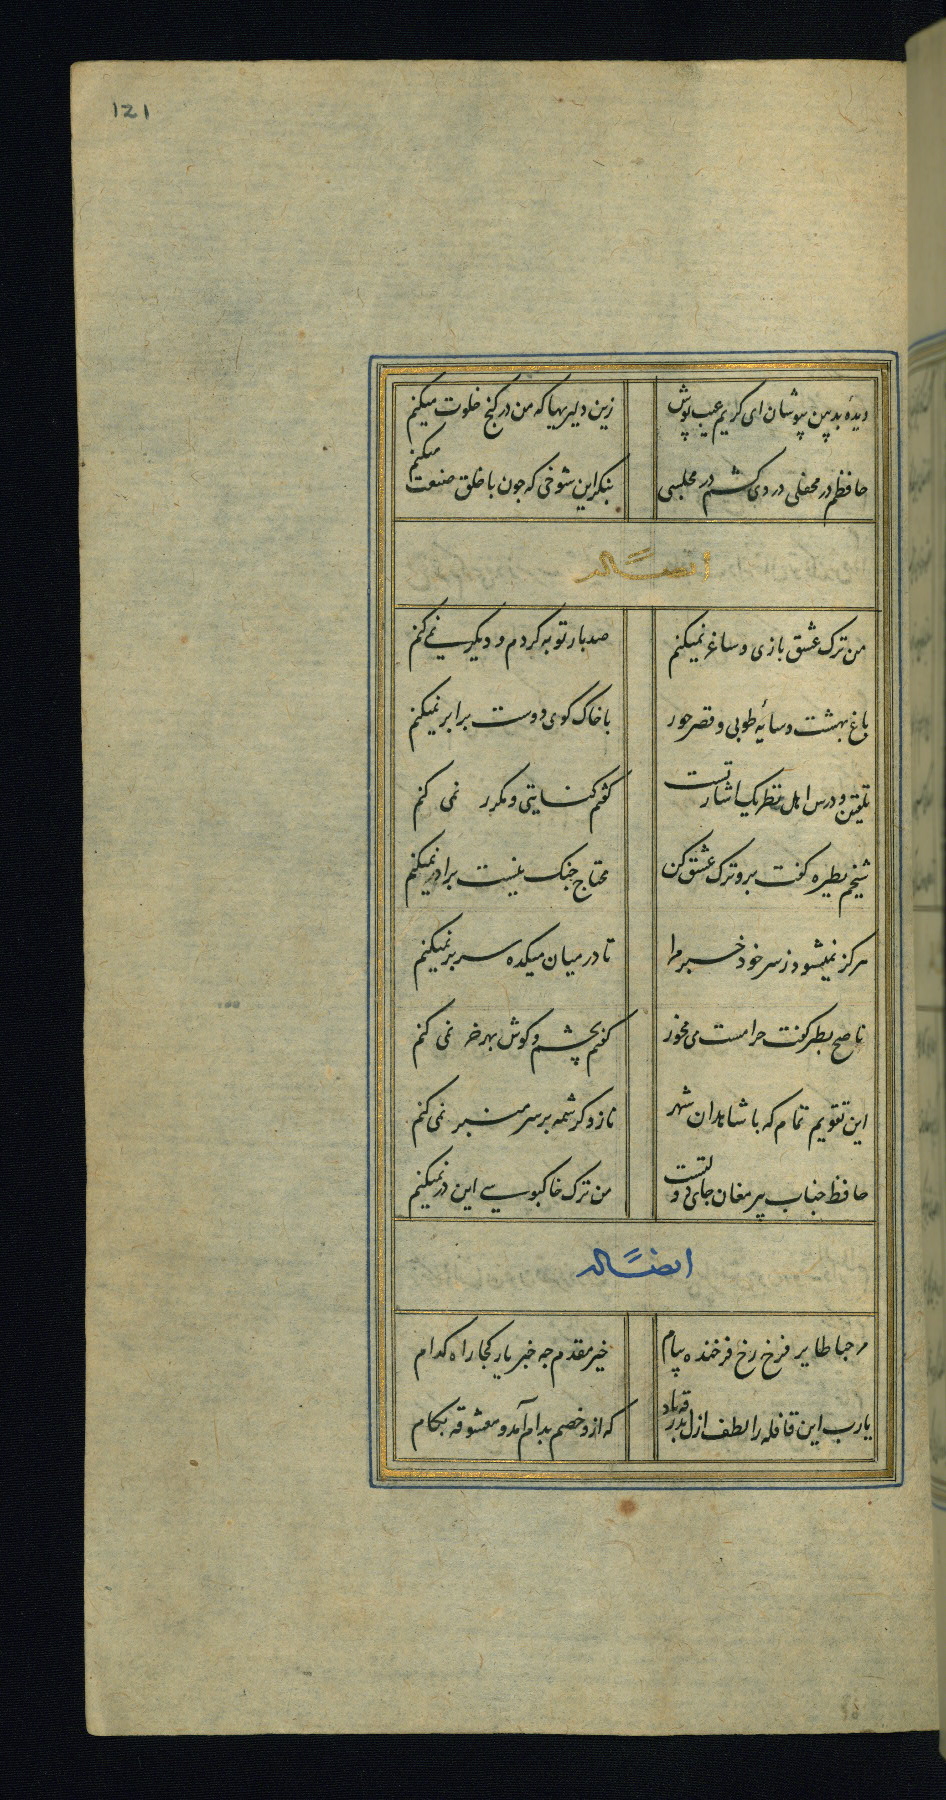 121
دیدهٔ بدبین بپوشان ای کریم عیب پوش
زین دلیریها که من در کنج خلوت میکنم
حافظم در محفلی دردی کشم در مجلسی
بنکر این شوخی که چون با خلق صنعت میکنم
ایضاً له
من ترک عشق بازی و ساغر نمیکنم
صد بار توبه کردم و دیکر نمی کنم
باغ بهشت و سایهٔ طوبی و قصر حور
با خاک کوی دوست برابر نمیکنم
تلقین و درس اهل نظر یک اشارتست
کفتم کنایتی و مکرر نمی کنم
شیخم بطیره کفت برو ترک عشق کن
محتاج جنک نیست برادر نمیکنم
هرکز نمیشود ز سر خود خبر مرا
تا در میان میکده سر بر نمیکنم
ناصح بطنز کفت حرامست می مخور
کفتم بچشم و کوش بهر خر نمی کنم
این تقویم تمام که با شاهدان شهر
ناز و کرشمه بر سر منبر نمی کنم
حافظ جناب پیر مغان جای دولتست
من ترک خاکبوسی این در نمیکنم
ایضاً له
مرحبا طایر فرخ رخ فرخنده پیام
خیر مقدم چه خبر یار کجا راه کدام
یارب این قافله را لطف ازل بدرقه باد
که ازو خصم بدام آمد و معشوقه بکام